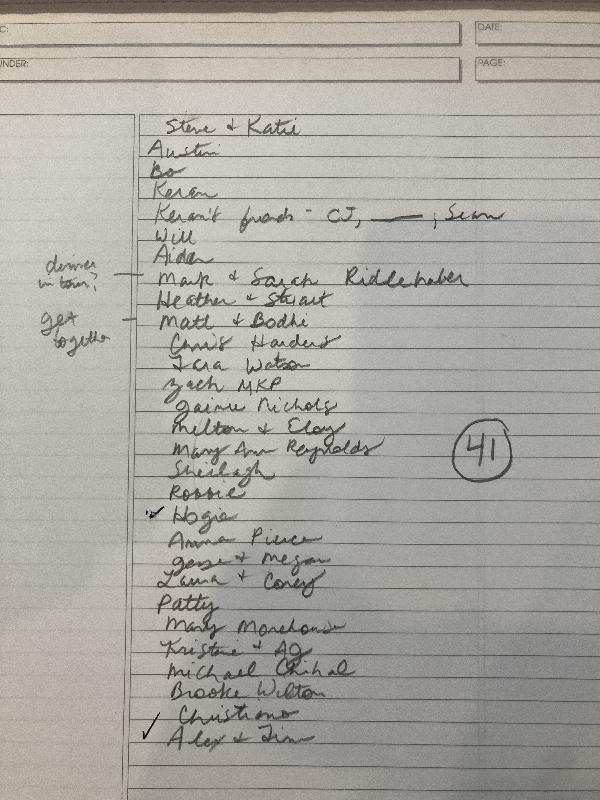 C:
DATE:
INDER:
PAGE:
Steve & Katie
Austin
Bo
Keran
Keran's friends - CJ, ——, Sean
Will
Aidan
dinner
in town?
Mark & Sarah Riddlehuber
Heather & Stuart
get
together
Matt & Bodhi
Chris Harders
Tara Watson
Zach MKP
Jaimie Nichols
Melton & Elay
Mary Ann Reynolds
41
Sheilagh
Robbie
✓ Hogie
Anna Pierce
Jesse & Megan
Laura & Corey
Patty
Mary Morehouse
Kristene & AG
Michael Chihal
Brooke Wilton
Christiano
✓ Alex & Tim